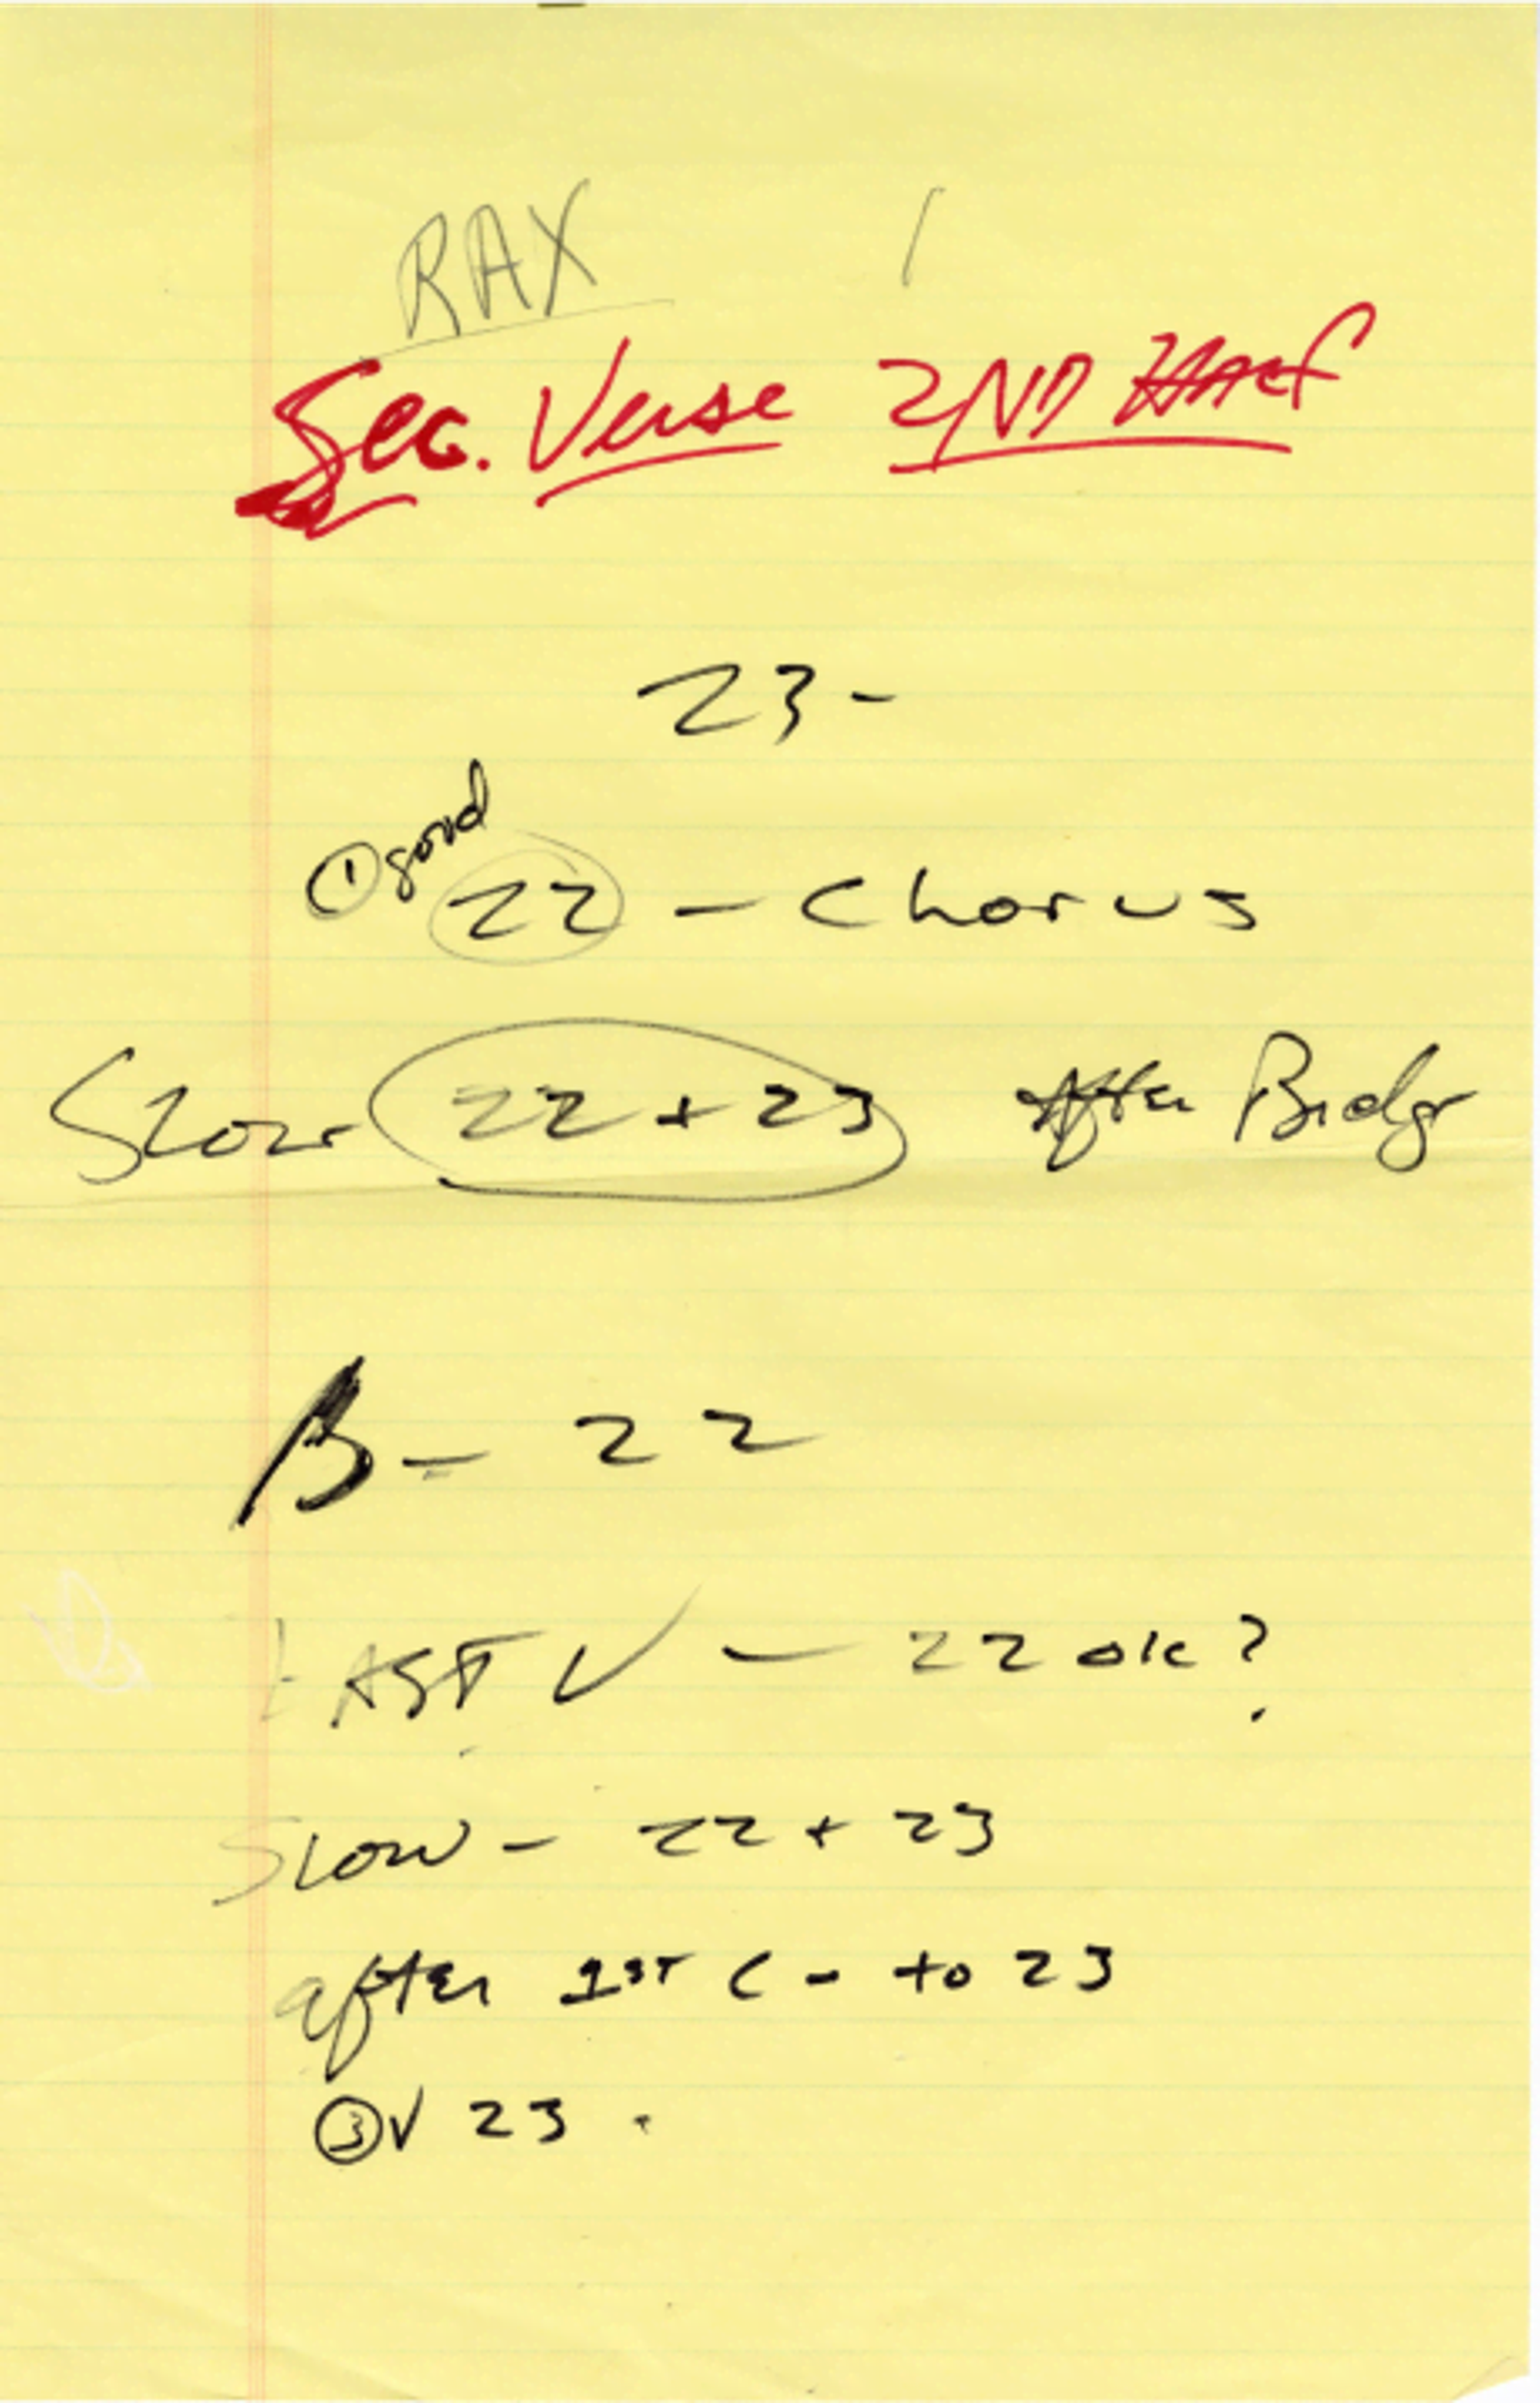 RAX
Sec. Verse 2ND Half
23-
① good
22 - Chorus
Slow 22 + 23 After Bridge
B - 22
FAST V - 22 ok?
Slow - 22 + 23
after 1ST C - to 23
③ V 23.